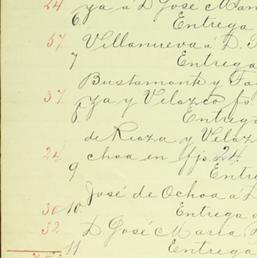 24 ya á D. José Man
6 Entrega
57. Villanueva á D. F
7 Entrega
Bustamonte y Fa
37. ya y Velozco fs
Entreg
de Rioza y Veloz
24. choa en fjs. 24.
9 Entre
José de Ochoa á D
30. 10. Entrega
32. D. José María
11 Entrega